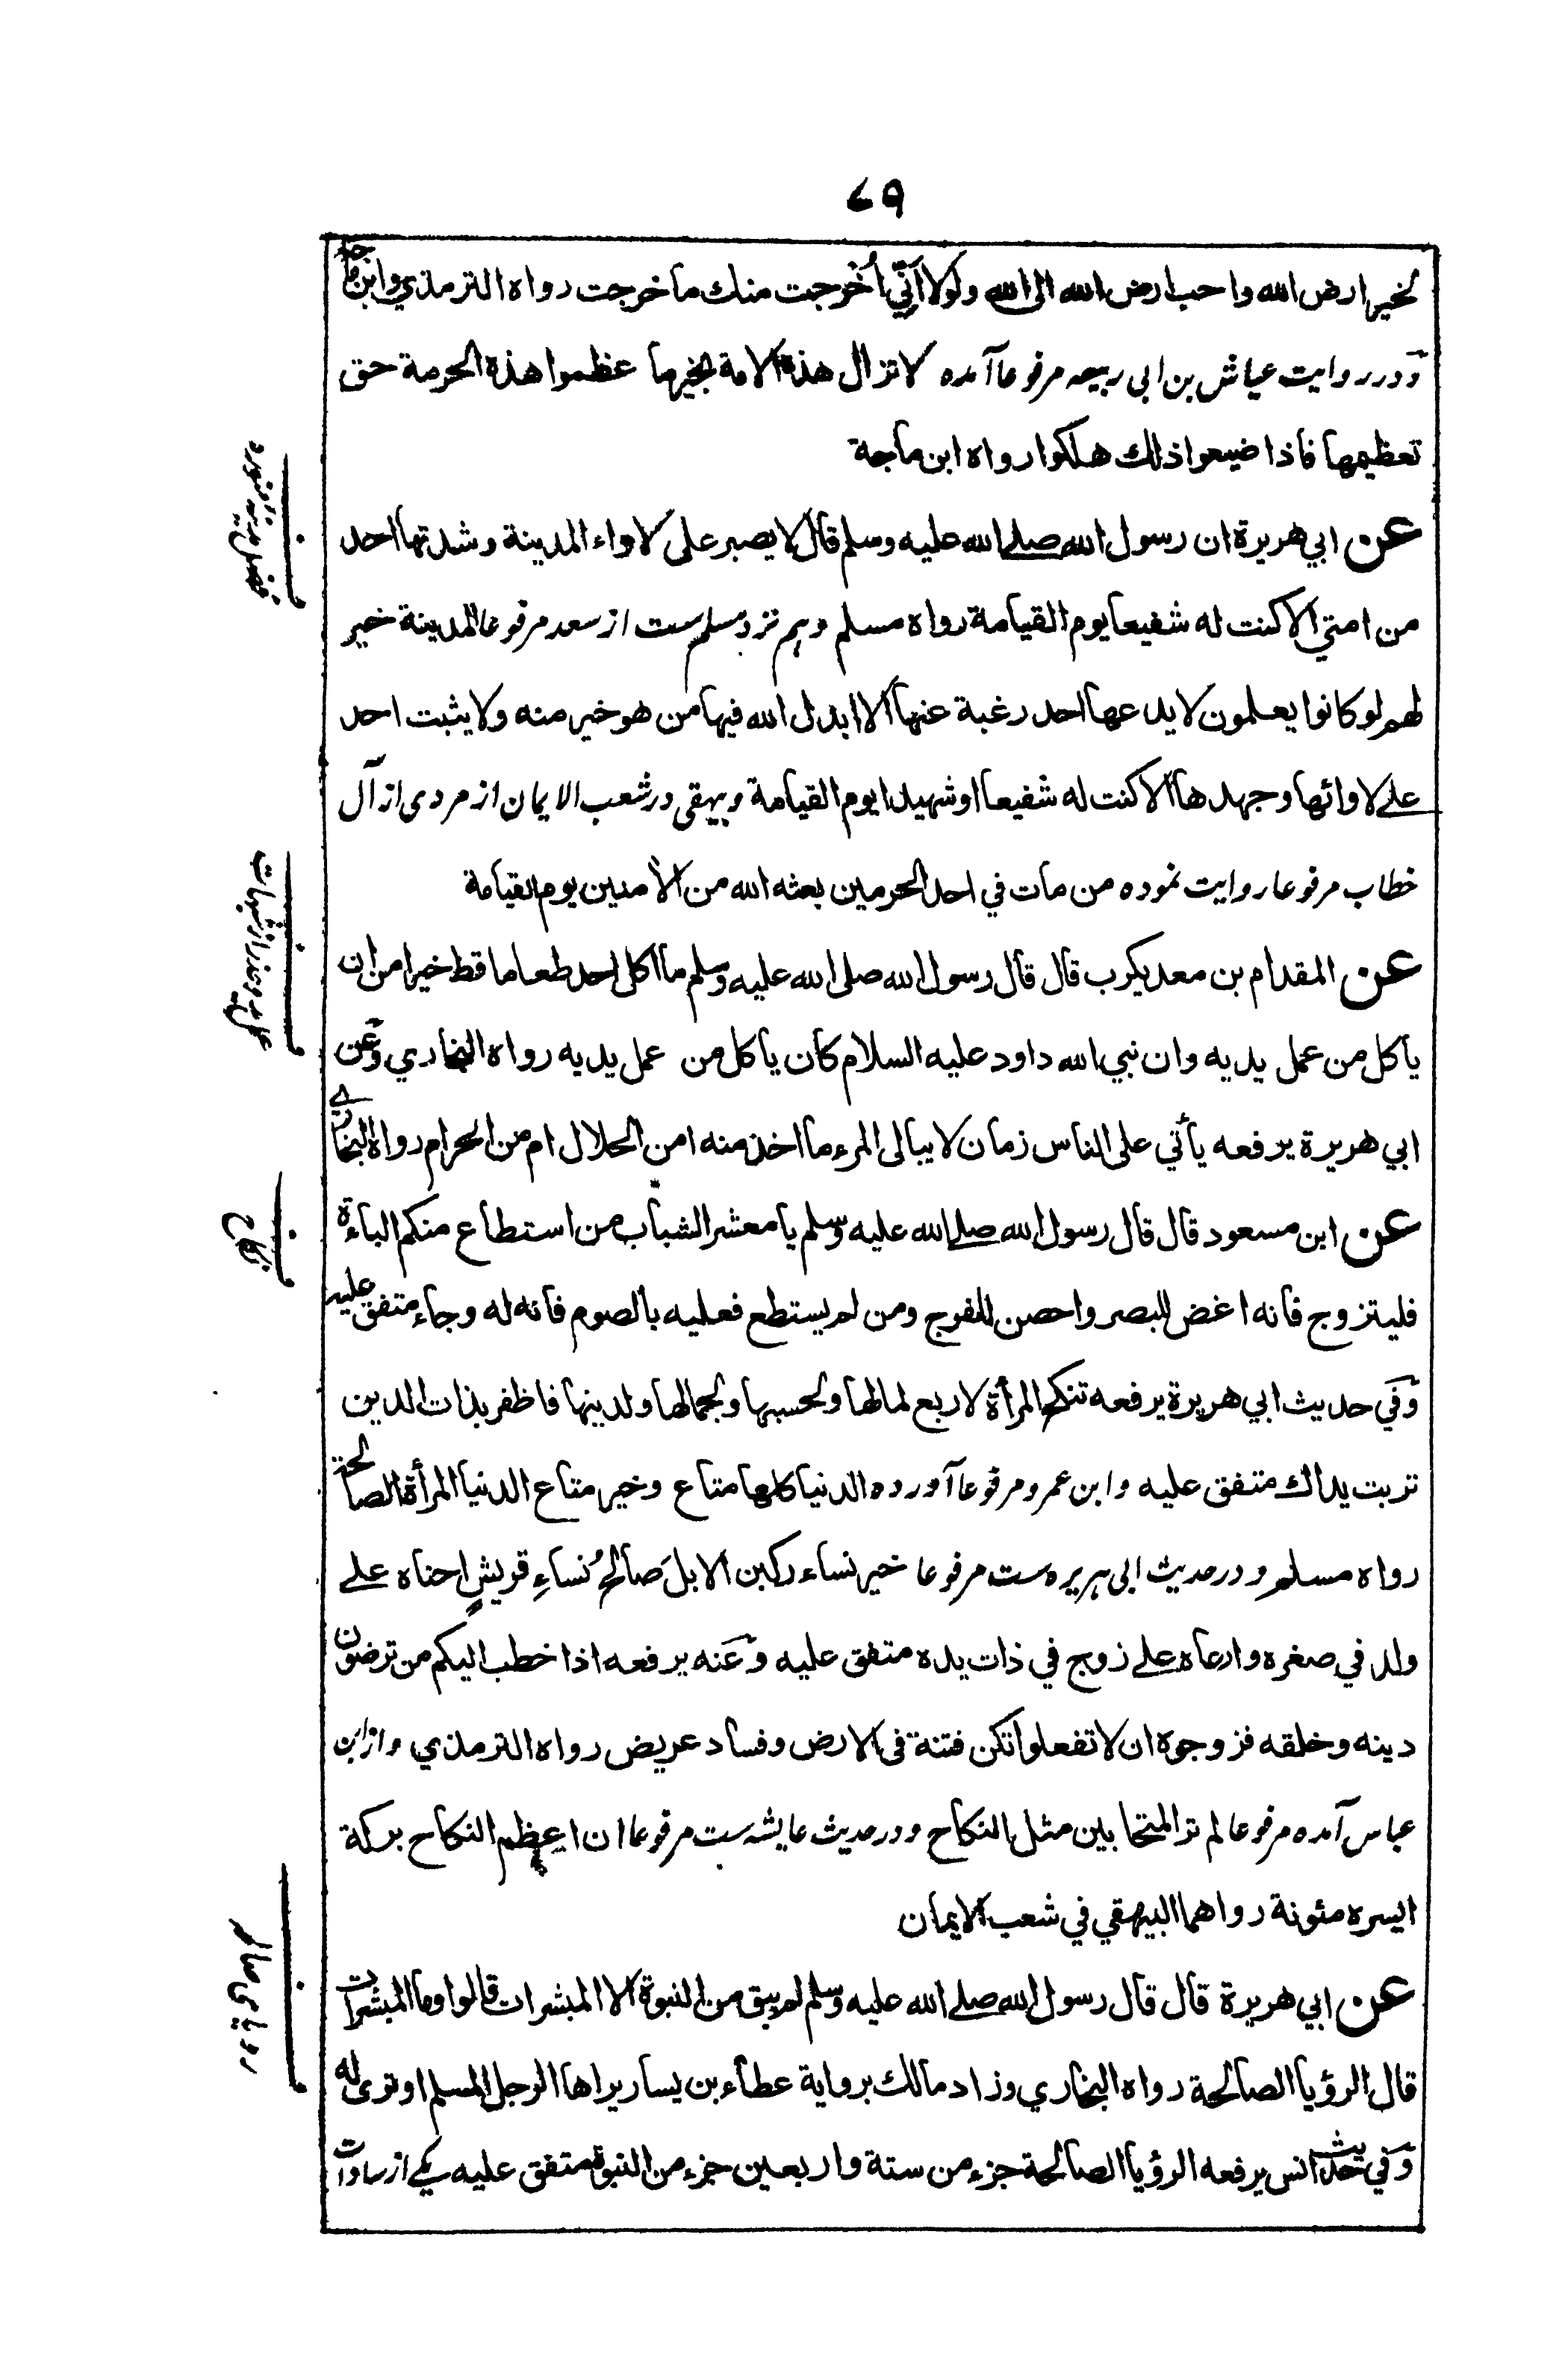 ۷۹
لخير ارض الله واحب ارض الله الى الله ولولا أنّي أُخْرِجت منك ما خرجت رواه الترمذي وابن ماجه
ودر روايت عياش بن ابى ربيعه مرفوعا آمده لا تزال هذه الامة بخير ما عظموا هذه الحرمة حق
تعظيمها فاذا ضيعوا ذلك هلكوا رواه ابن ماجة
عن ابي هريرة ان رسول الله صلى الله عليه وسلم قال لا يصبر على لاواء المدينة وشدتها احد
من امتي الا كنت له شفيعا يوم القيامة رواه مسلم وهم نزد مسلم ست از سعد مرفوعا المدينة خير
لهم لو كانوا يعلمون لا يدعها احد رغبة عنها الا ابدل الله فيها من هو خير منه ولا يثبت احد
على لاوائها وجهدها الا كنت له شفيعا او شهيدا يوم القيامة وبيهقى در شعب الايمان از مردى از آل
خطاب مرفوعا روايت نموده من مات في احد الحرمين بعثه الله من الآمنين يوم القيامة
عن المقدام بن معديكرب قال قال رسول الله صلى الله عليه وسلم ما اكل احد طعاما قط خيرا من ان
يأكل من عمل يديه وان نبي الله داود عليه السلام كان يأكل من عمل يديه رواه البخاري وعن
ابي هريرة يرفعه يأتي على الناس زمان لا يبالى المرء ما اخذ منه امن الحلال ام من الحرام رواه البخاري
عن ابن مسعود قال قال رسول الله صلى الله عليه وسلم يا معشر الشباب من استطاع منكم الباءة
فليتزوج فانه اغض للبصر واحصن للفرج ومن لم يستطع فعليه بالصوم فانه له وجاء متفق عليه
وفي حديث ابي هريرة يرفعه تنكح المرأة لاربع لمالها ولحسبها ولجمالها ولدينها فاظفر بذات الدين
تربت يداك متفق عليه وابن عمرو مرفوعا آورده الدنيا كلها متاع وخير متاع الدنيا المرأة الصالحة
رواه مسلم ودر حديث ابى هريره ست مرفوعا خير نساء ركبن الابلَ صالحُ نساءِ قريشٍ احناه على
ولد في صغره وارعاه على زوج في ذات يده متفق عليه وعنه يرفعه اذا خطب اليكم من ترضون
دينه وخلقه فزوجوه ان لا تفعلوا تكن فتنة فى الارض وفساد عريض رواه الترمذي واز ابن
عباس آمده مرفوعا لم تر المتحابين مثل النكاح ودر حديث عايشه ست مرفوعا ان اعظم النكاح بركة
ايسره مئونة رواهما البيهقي في شعب الايمان
عن ابي هريرة قال قال رسول الله صلى الله عليه وسلم لم يبق من النبوة الا المبشرات قالوا وما المبشرات
قال الرؤيا الصالحة رواه البخاري وزاد مالك برواية عطاء بن يسار يراها الرجل المسلم او ترى له
وفي حديث انس يرفعه الرؤيا الصالحة جزء من ستة واربعين جزء من النبوة متفق عليه يكے از سادات
ف
فضل مدينه منوره
ف
عمل يد وحذر از شبهات
ف
نكاح
ف
روياى صالحه